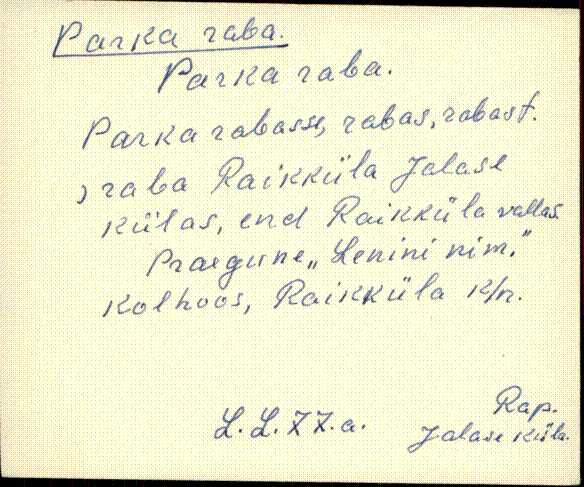 Parka raba.
Parka raba.
Parka rabasse, rabas, rabast.
, raba Raikküla Jalase
külas, end Raikküla vallas.
Praegune „Lenini nim.”
Kolhoos, Raikküla k/n.
L. L. 77.a.
Rap.
Jalase küla.